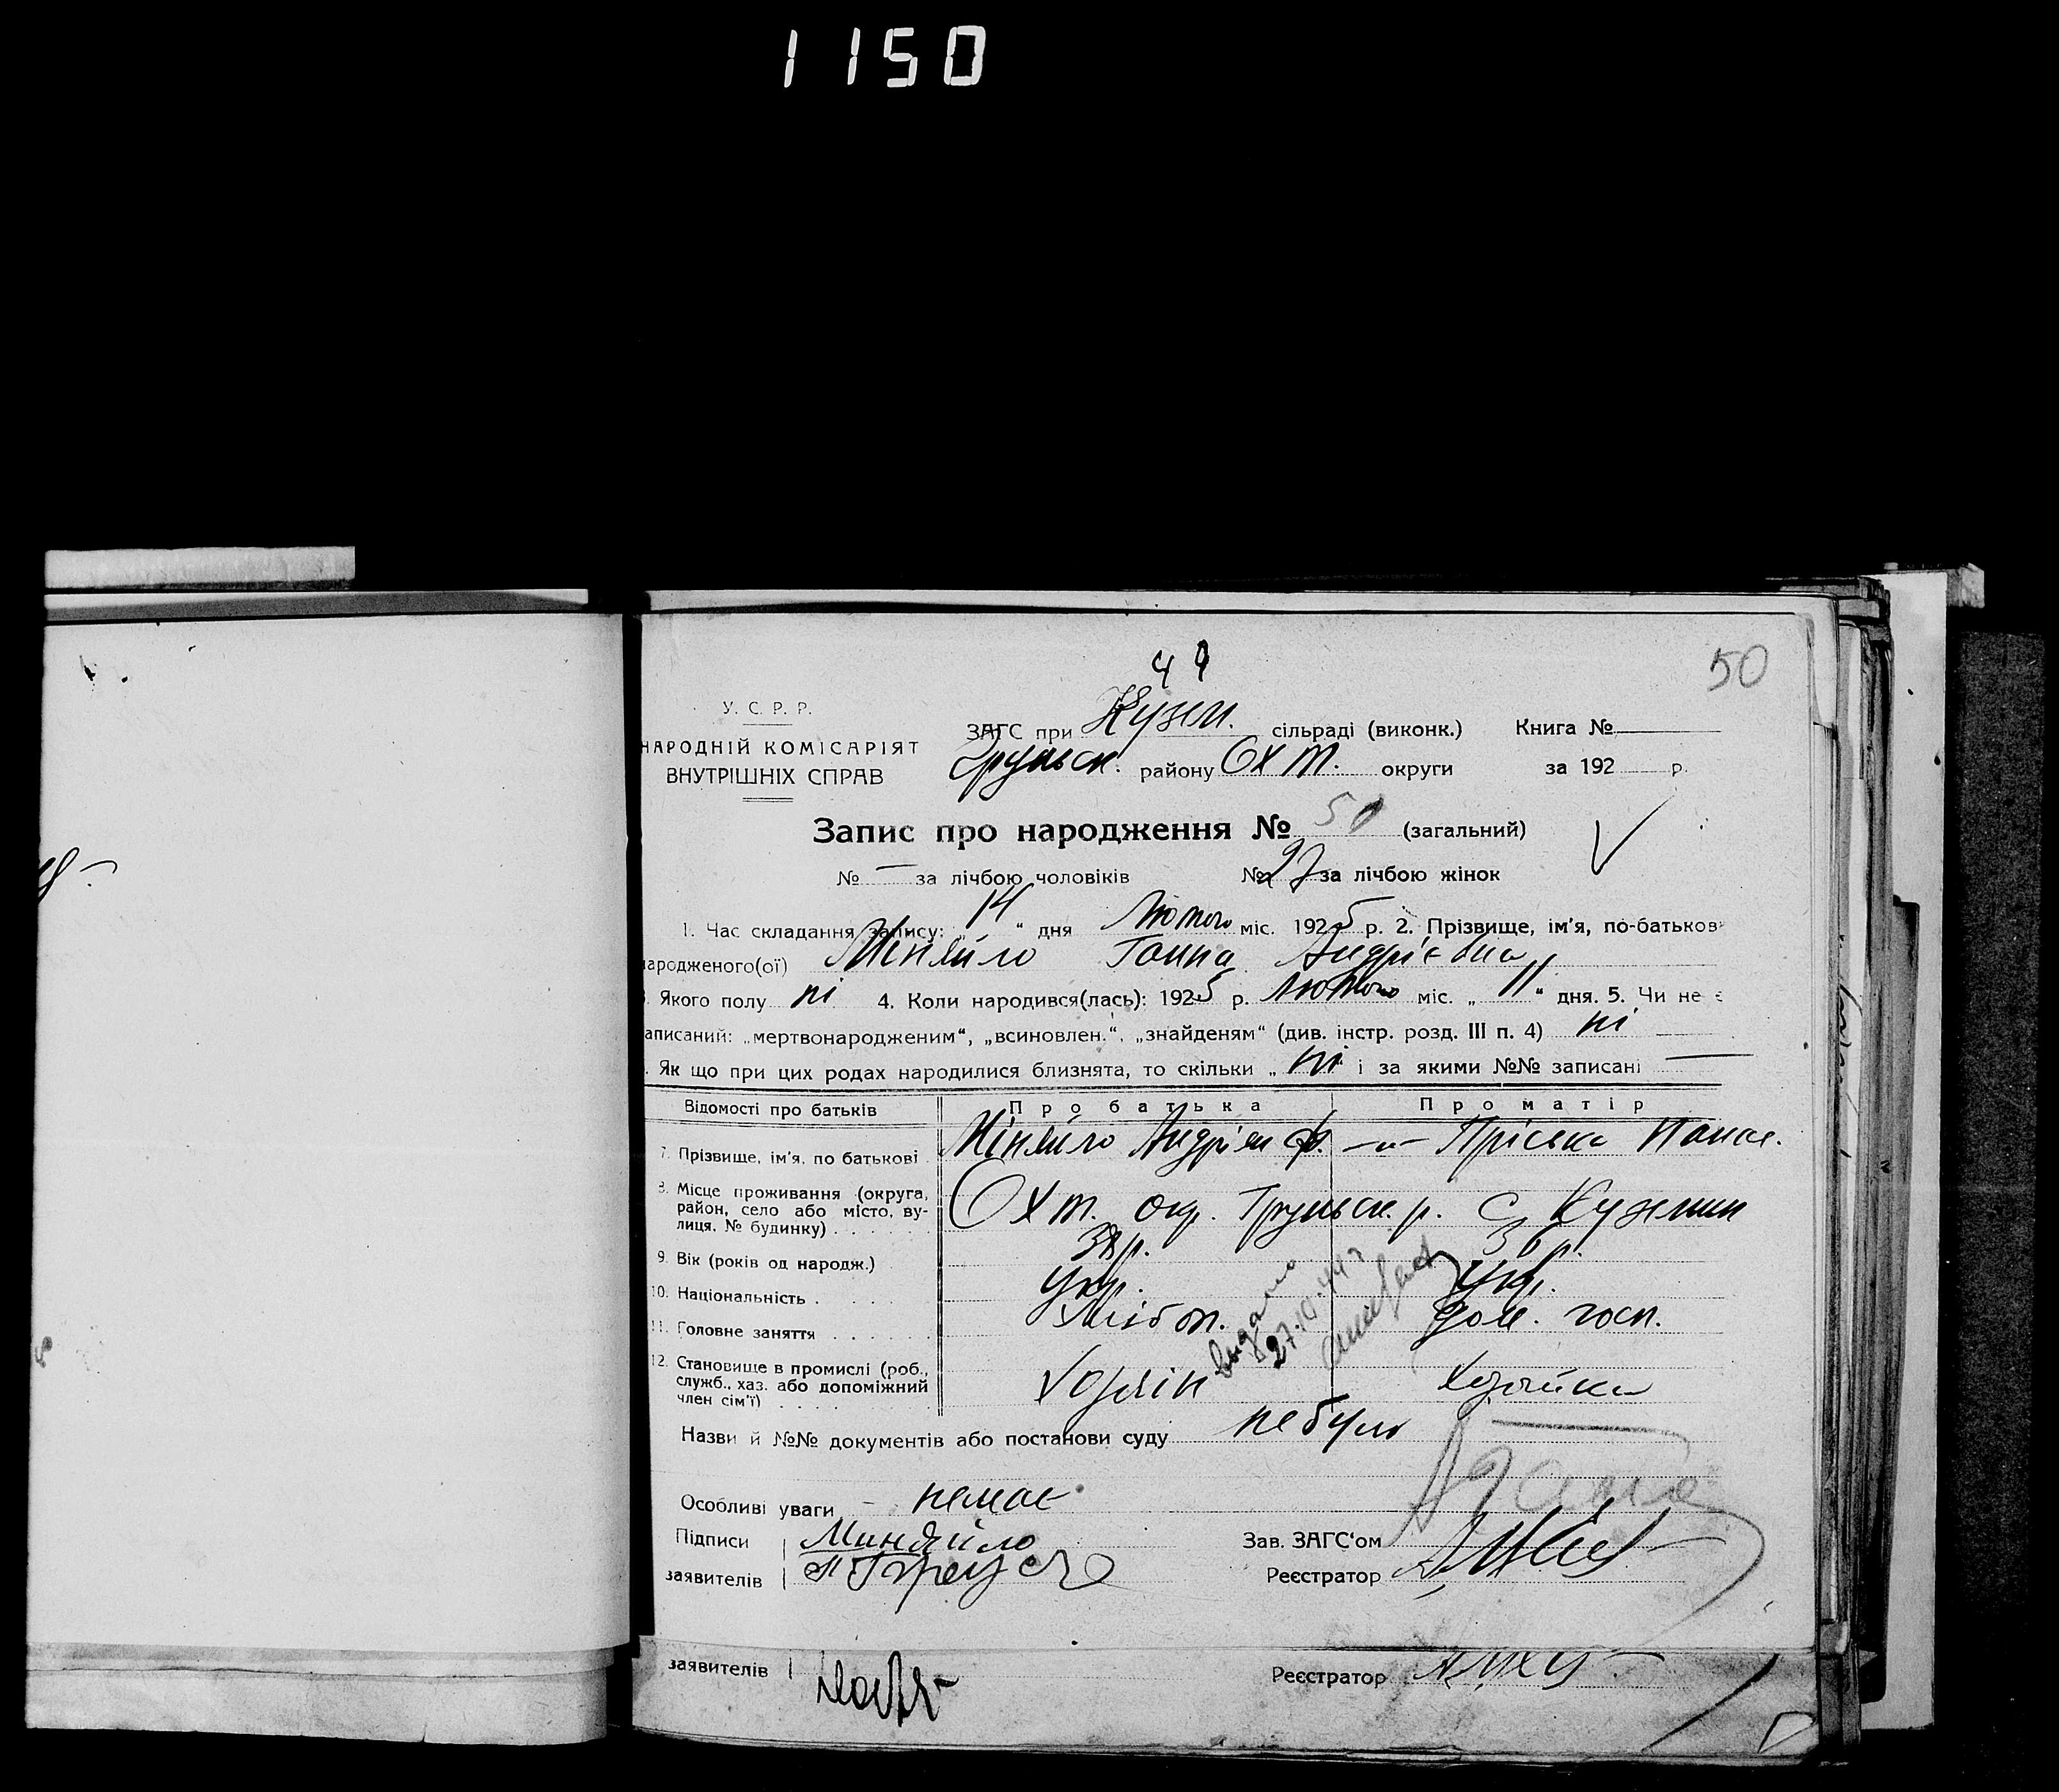 1150
49
50
У. С. Р. Р.
НАРОДНІЙ КОМІСАРІЯТ
ВНУТРІШНІХ СПРАВ
ЗАГС при Кузем. сільраді (виконк.) Книга №
Грунськ. району Охт. округи за 192 р.
Запис про народження № 50 (загальний)
№ — за лічбою чоловіків № 27 за лічбою жінок
1. Час складання запису: „14“ дня Лютого міс. 1925 р. 2. Прізвище, ім'я, по-батьков
народженого(ої) Міняйло Ганна Андрієвна
Якого полу ні 4. Коли народився(лась): 1925 р. Лютого міс. „11“ дня. 5. Чи не є
аписаний: „мертвонародженим“, „всиновлен.“, „знайденям“ (див. інстр. розд. III п. 4) ні
. Як що при цих родах народилися близнята, то скільки „ні“ і за якими №№ записані —
Відомості про батьків Про батька Про матір
7. Прізвище, ім'я, по батькові Міняйло Андрій Ф. —„— Пріська Панас.
8. Місце проживання (округа,
район, село або місто, ву-
лиця, № будинку) Охт. окр. Грунськ. р. С. Куземин
9. Вік (років од народж.) 38 р. 36 р.
10. Національність Укр. Укр.
11. Головне заняття Хлібор. дом. госп.
12. Становище в промислі (роб.,
служб., хаз. або допоміжний
член сім'ї) Хазяїн Хазяйка
видано
27.10.44 р
Назви й №№ документів або постанови суду не було
Особливі уваги — немає
Підписи Миняйло Зав. ЗАГС'ом
заявителів Реєстратор
заявителів Реєстратор